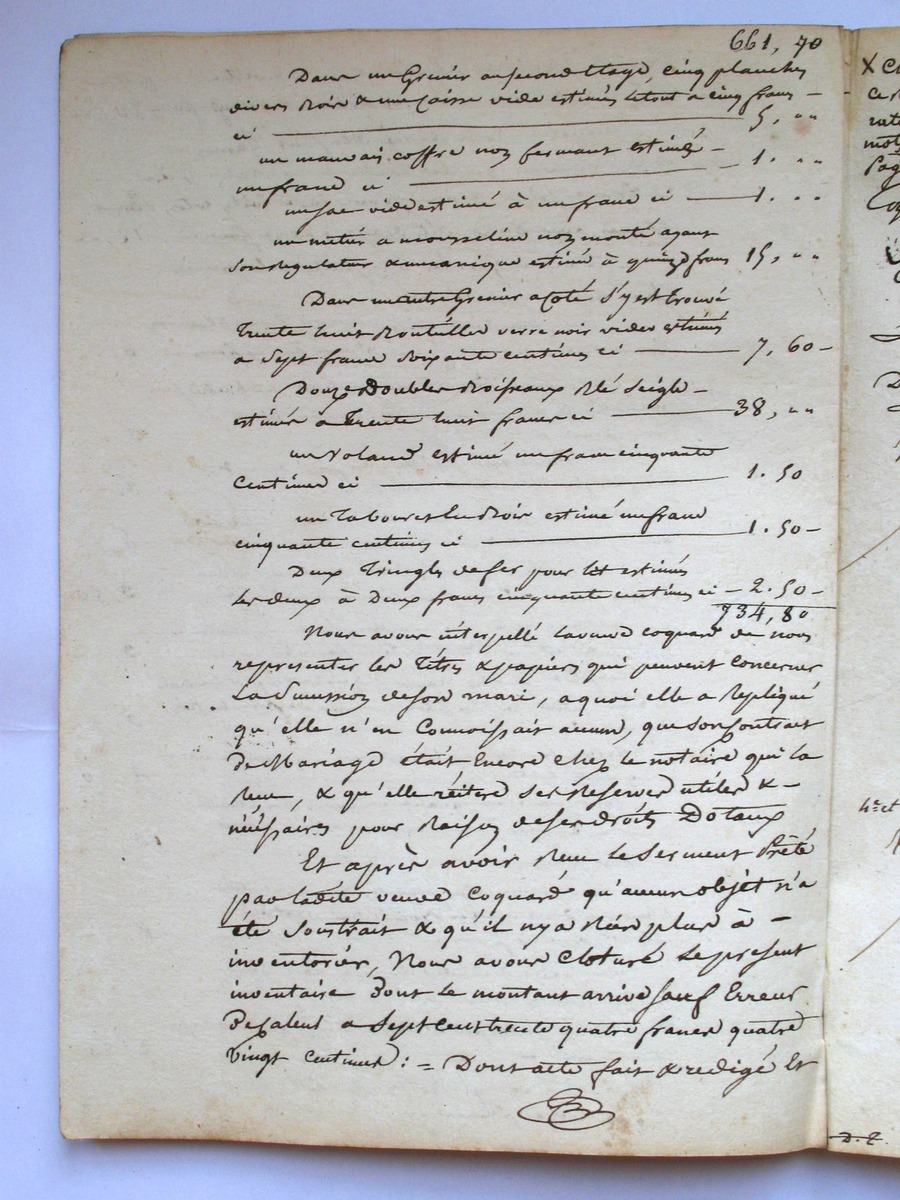 661, 70
Dans un Grenier au second Etage, cinq planches
divers Bois & une Caisse vide estimés letout a cinq francs –
ci 5, " "
un mauvais coffre non fermant estimé –
un franc ci 1. " "
un sac vide estimé à un franc ci 1. " "
un métier a mousseline non monté ayant
son regulateur & mecanique estimé à quinze francs 15, " "
Dans un autre Grenier acoté s'y est trouvé
Trente huit Bouteilles verre noir vides estimées
a Sept francs Soixante centimes ci 7, 60 –
Douze Doubles Boisseaux Blé Seigle –
estimés a Trente huit francs ci 38, " "
un Volant estimé un franc cinquante
Centimes ci 1. 50
un Tabouret en Bois estimé un franc
cinquante centimes ci 1. 50 –
Deux Tringles defer pour lit estimés
les deux à Deux francs cinquante centimes ci – 2. 50 –
734, 80
Nous avons interpellé laveuve Coquard de nous
representer les Titres & papiers qui peuvent Concerner
La Succession deson mari, aquoi elle a Repliqué
qu'elle n'en Connoissait aucun, que son Contrat
De Mariage était Encore chez le notaire qui l'a
Reçu, & qu'elle réitere ses Reserves utiles & –
nécéssaires pour Raison de ses droits Dotaux
Et après avoir Reçu le Serment Prêté
par ladite veuve Coquard qu'aucun objet n'a
été Soustrait & qu'il n'y a Rien plus à –
inventorier, Nous avons Cloturé le present
inventaire Dont le montant arrive sauf Erreur
De Calcul a Sept Cent trente quatre francs quatre
Vingt Centimes : = Dont acte fait & redigé Et
X
4.e et
D. 2.